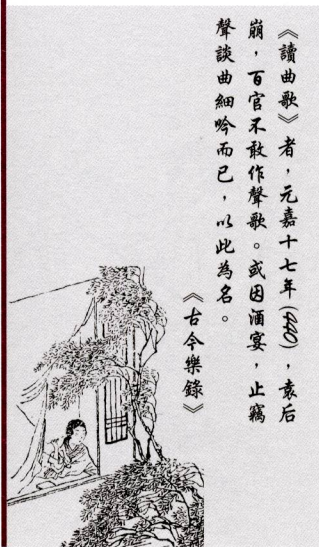 《讀曲歌》者，元嘉十七年(440)，袁后
崩，百官不敢作聲歌。或因酒宴，止竊
聲談曲細吟而已，以此為名。
《古今樂錄》